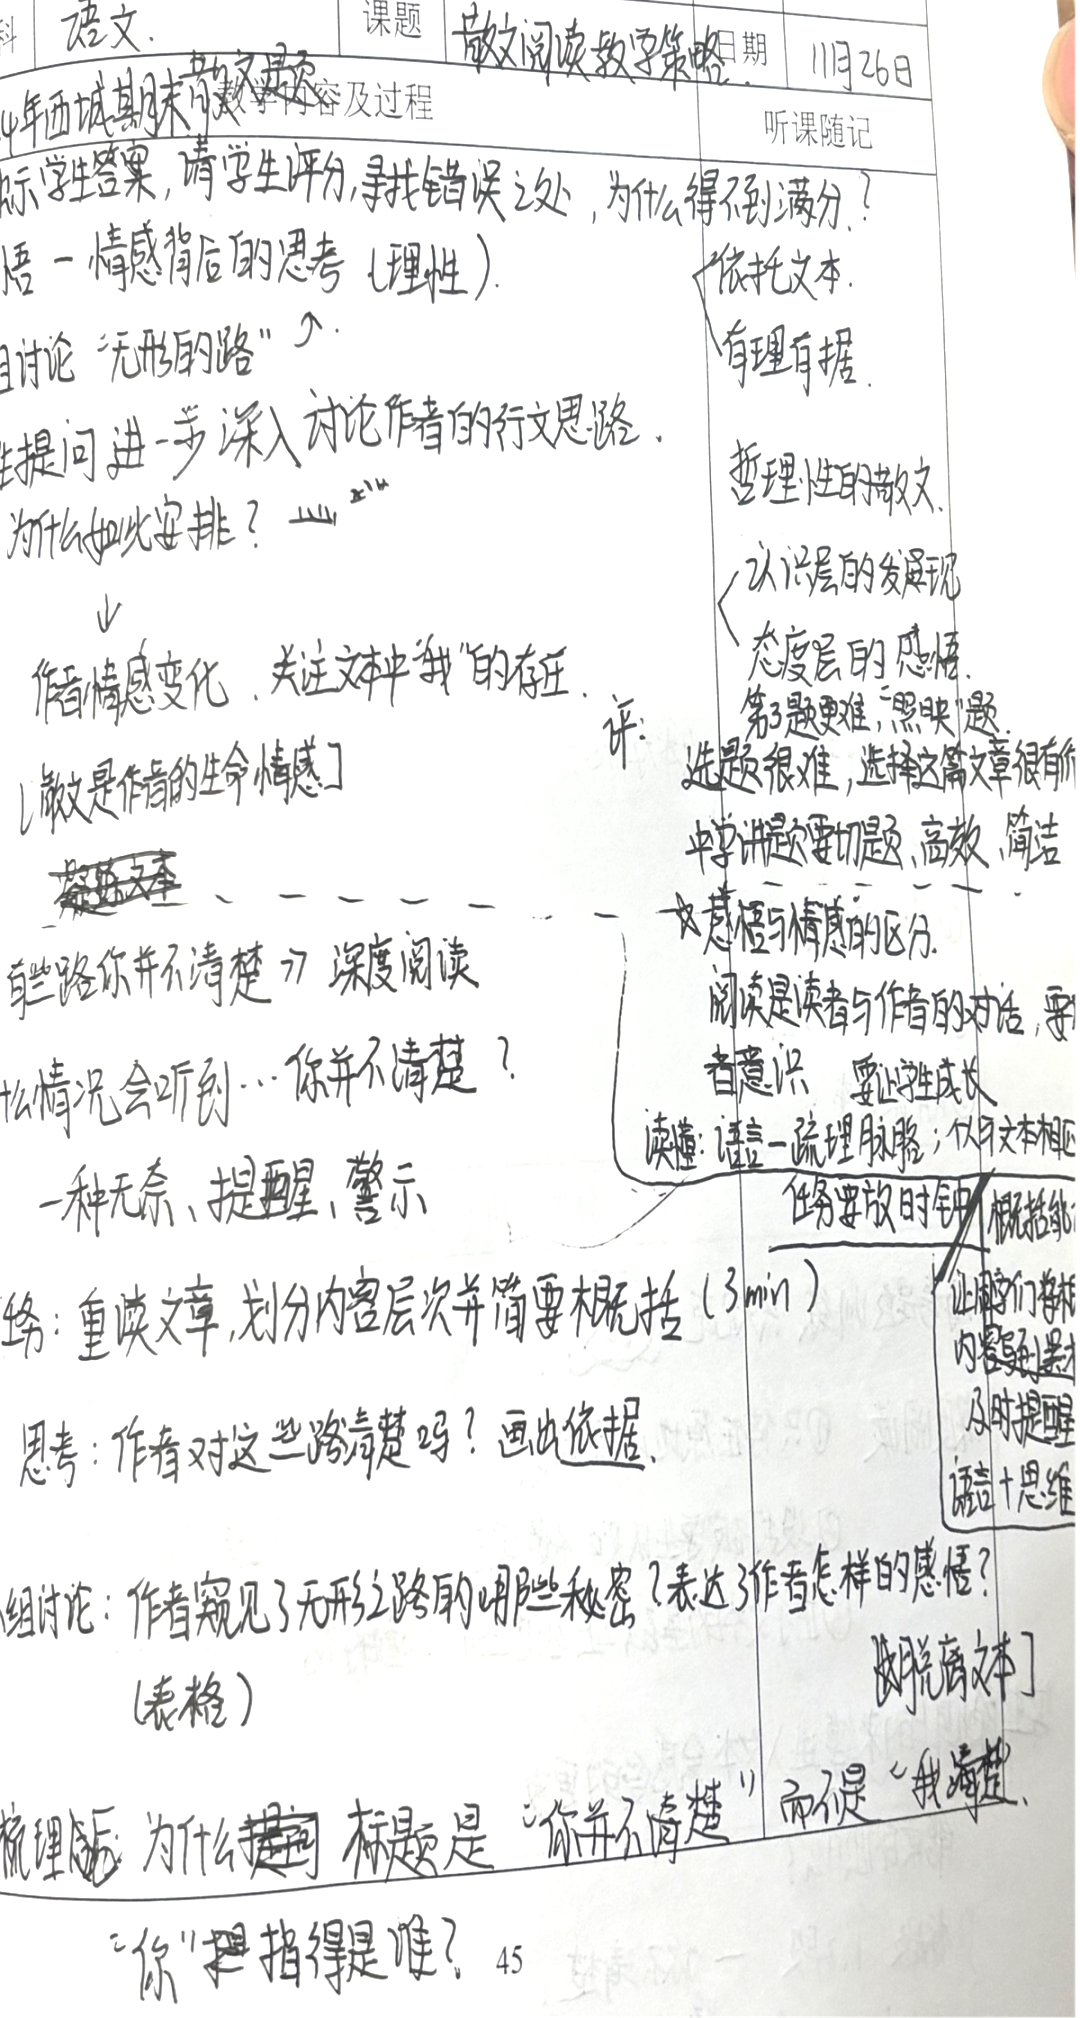 科 语文. 课题 散文阅读教学策略. 日期 11月26日
4年西城期末散文题
教学内容及过程 听课随记
示学生答案,请学生评分,寻找错误之处,为什么得不到满分?
悟-情感背后的思考(理性).
依托文本.
讨论"无形的路"
有理有据.
提问进一步深入讨论作者的行文思路.
哲理性的散文.
为什么如此安排?
认识层的发现
态度层的感悟.
作者情感变化.关注文本中"我"的存在.
第3题更难,"照映"题.
评:
选题很难,选择这篇文章很有价
[散文是作者的生命情感]
中学讲题要切题、高效、简洁
☆感悟与情感的区分.
有些路你并不清楚 》 深度阅读
阅读是读者与作者的对话,要
么情况会听到…你并不清楚?
者意识 要让学生成长
读懂:语言-疏理脉络;
一种无奈、提醒、警示
任务要放时钟
概括能
任务:重读文章,划分内容层次并简要概括(3min)
让同学们
内容
及时提醒
思考:作者对这些路清楚吗?画出依据.
语言+思维
组讨论:作者窥见了无形之路的哪些秘密?表达了作者怎样的感悟?
(表格)
脱离文本]
梳理后:为什么标题是"你并不清楚"而不是"我清楚.
"你"指得是谁?
45